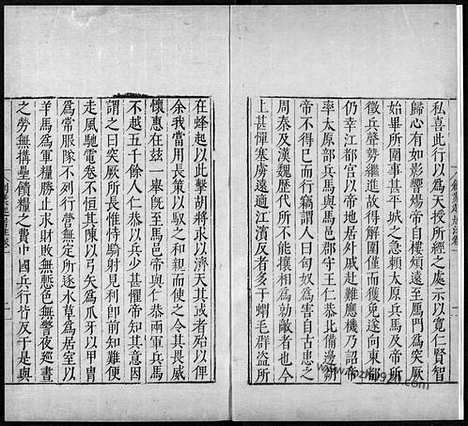 私喜此行以為天授所經之處示以寬仁賢智
歸心有如影響煬帝自樓煩遠至鴈門為突厥
始畢所圍事甚平城之急賴太原兵馬及帝所
徵兵聲勢繼進故得解圍僅而獲免遂向東都
仍幸江都宮以帝地居外戚赴難應機乃詔帝
率太原部兵馬與馬邑郡守王仁恭北備邊朔
帝不得已而行竊謂人曰匈奴為害自古患之
周秦及漢魏歷代所不能攘相為勍敵者也今
上甚憚塞虜遠適江濱反者多于蝟毛群盜所
在蜂起以此擊胡將求以濟天其或者殆以俾
余我當用長策以馭之和親而使之令其畏威
懷惠在茲一舉既至馬邑帝與仁恭兩軍兵馬
不越五千餘人仁恭以兵少甚懼帝知其意因
謂之曰突厥所長惟恃騎射見利即前知難便
走風馳電卷不恒其陳以弓矢為爪牙以甲冑
為常服隊不列行營無定所逐水草為居室以
羊馬為軍糧勝止求財敗無慙色無警夜巡晝
之勞無搆壘饋糧之費中國兵行皆反于是與